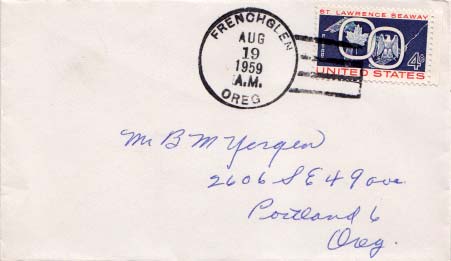 FRENCHGLEN
AUG
19
1959
A.M.
OREG
ST. LAWRENCE SEAWAY
4¢
UNITED STATES
Mr B M Yergen
2606 S E 49 ave.
Portland 6
Oreg.